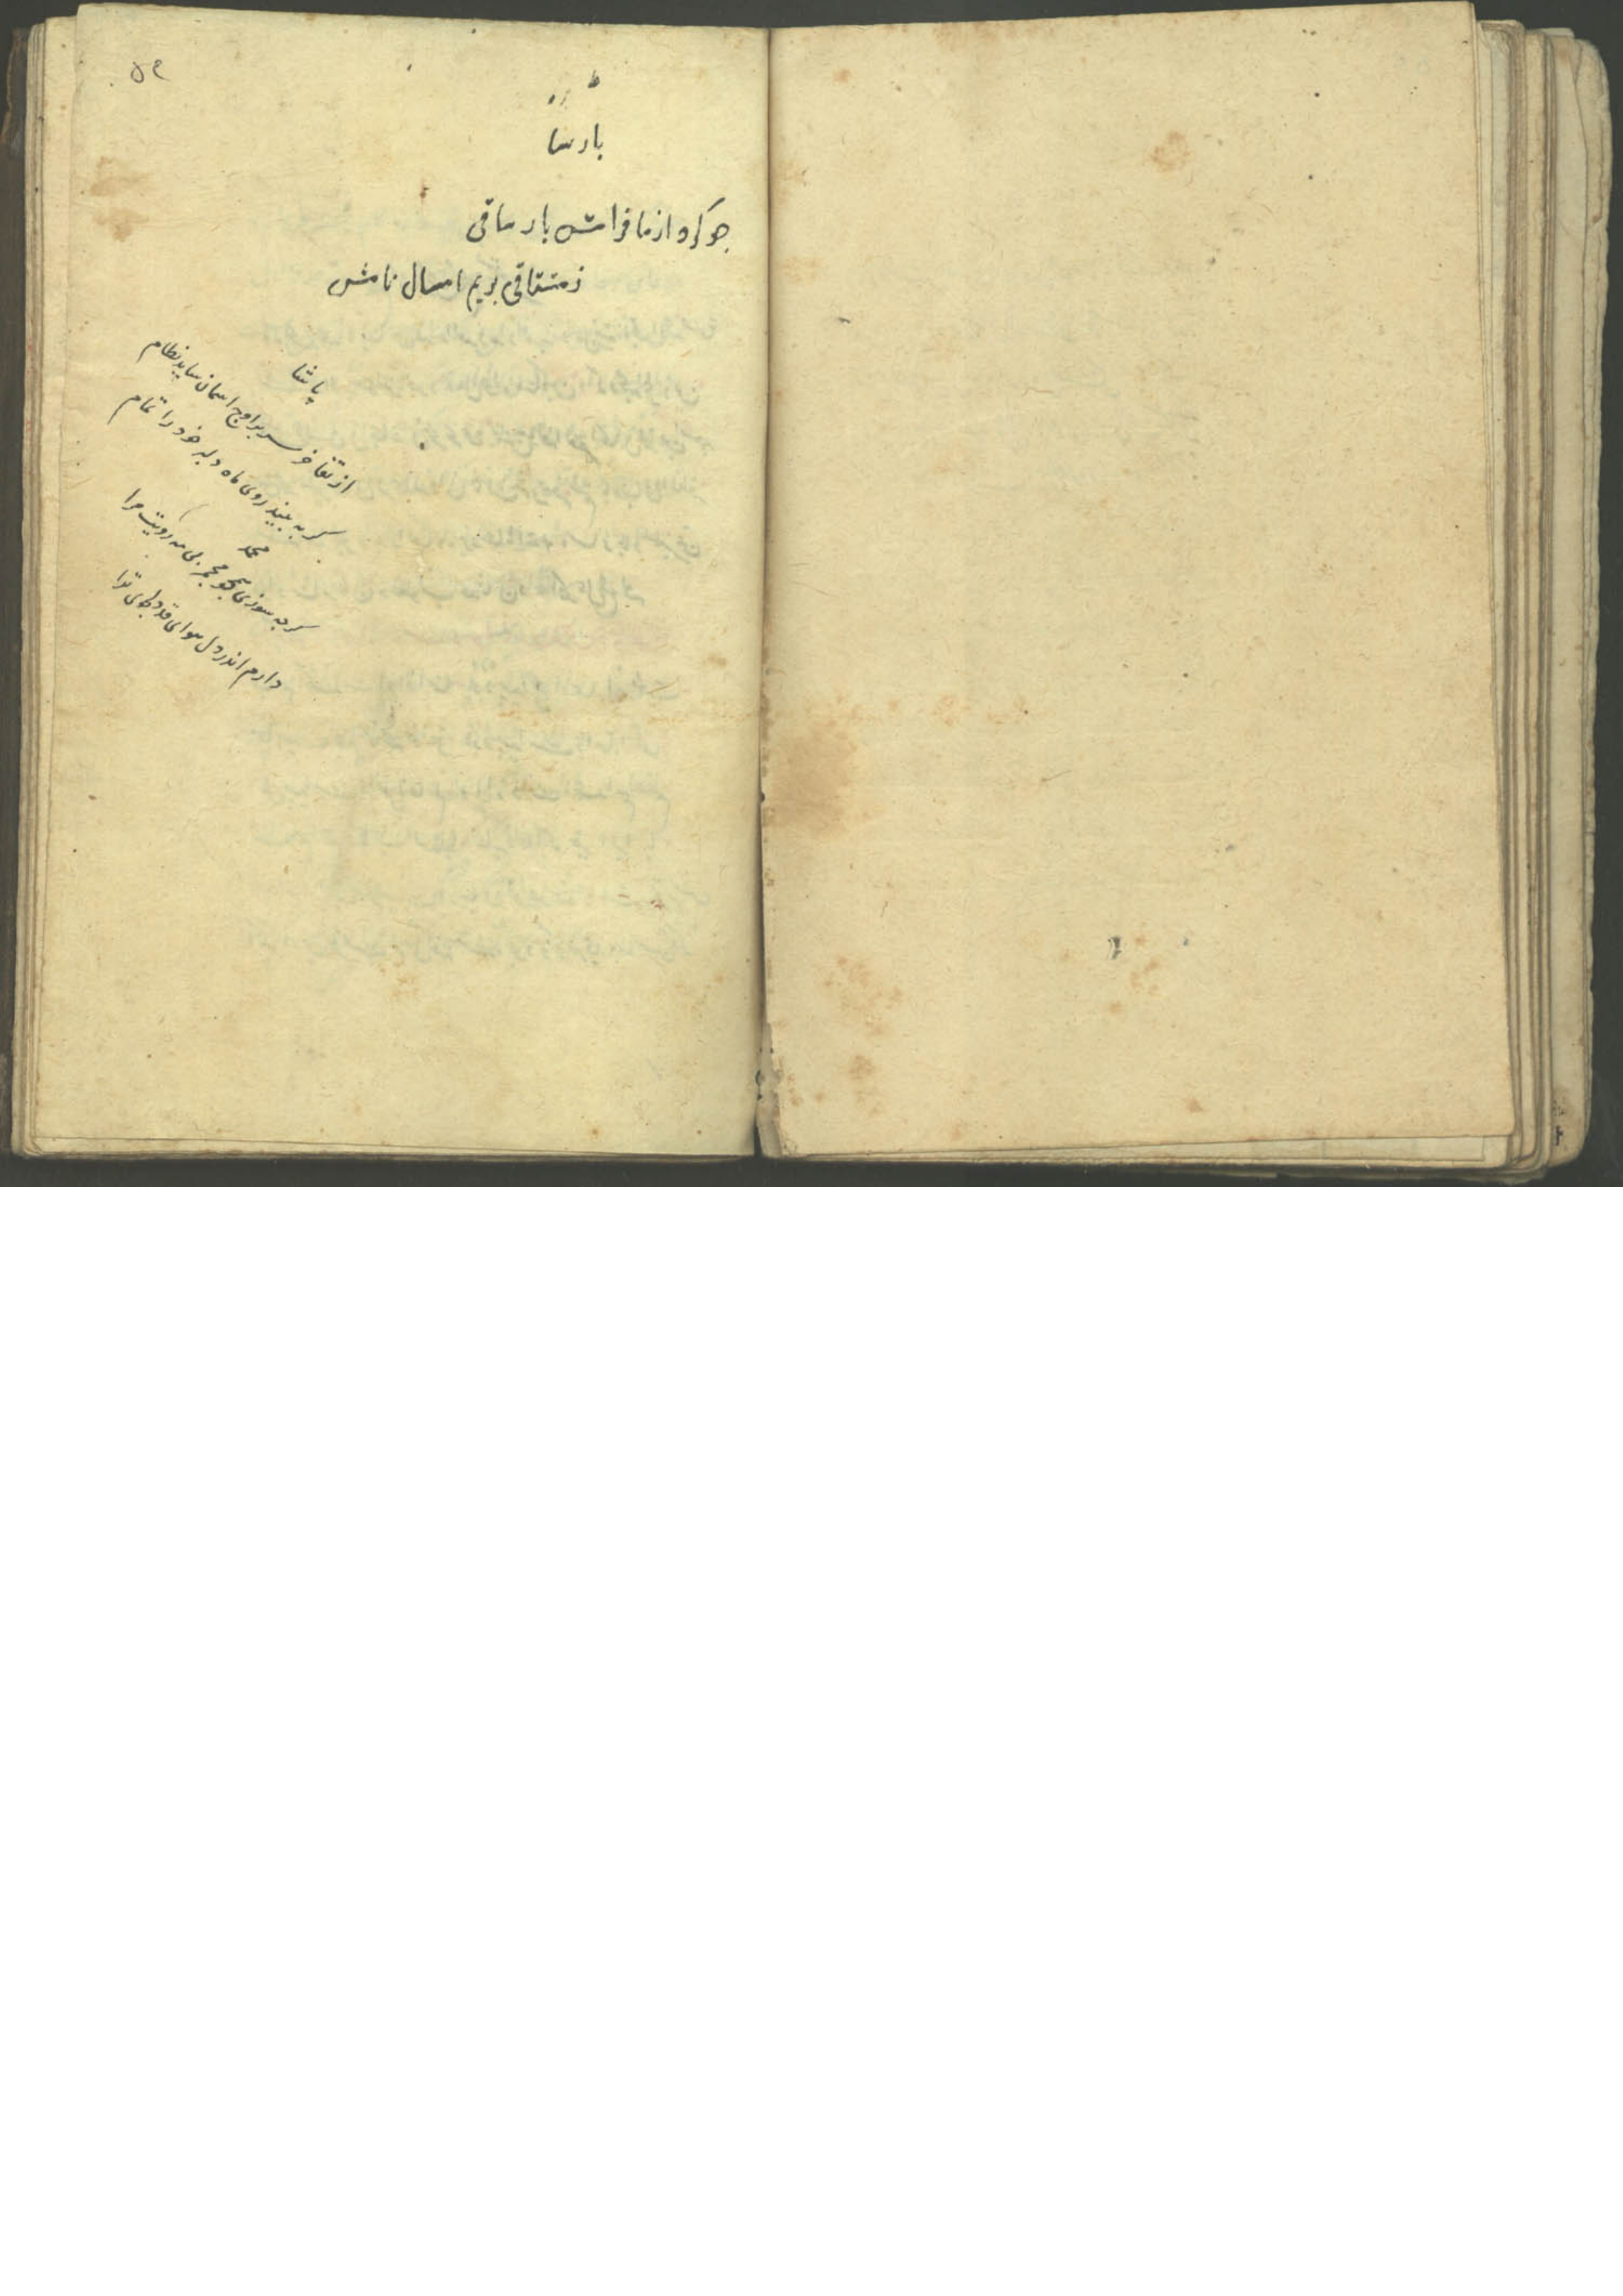 ۵۹
بارسا
جو کرد از ما فرامش بار ساقی
ز مشتاقی بریم امسال نامش
پاشا
از تفاخر سر بر اوج اسمان ساید نظام
کر به بیند روی ماه دلبر خود را تمام
محمد
کر بسوزی همچو مجمر بی مه رویت مرا
دارم اندر دل هوای قد دلجوی ترا